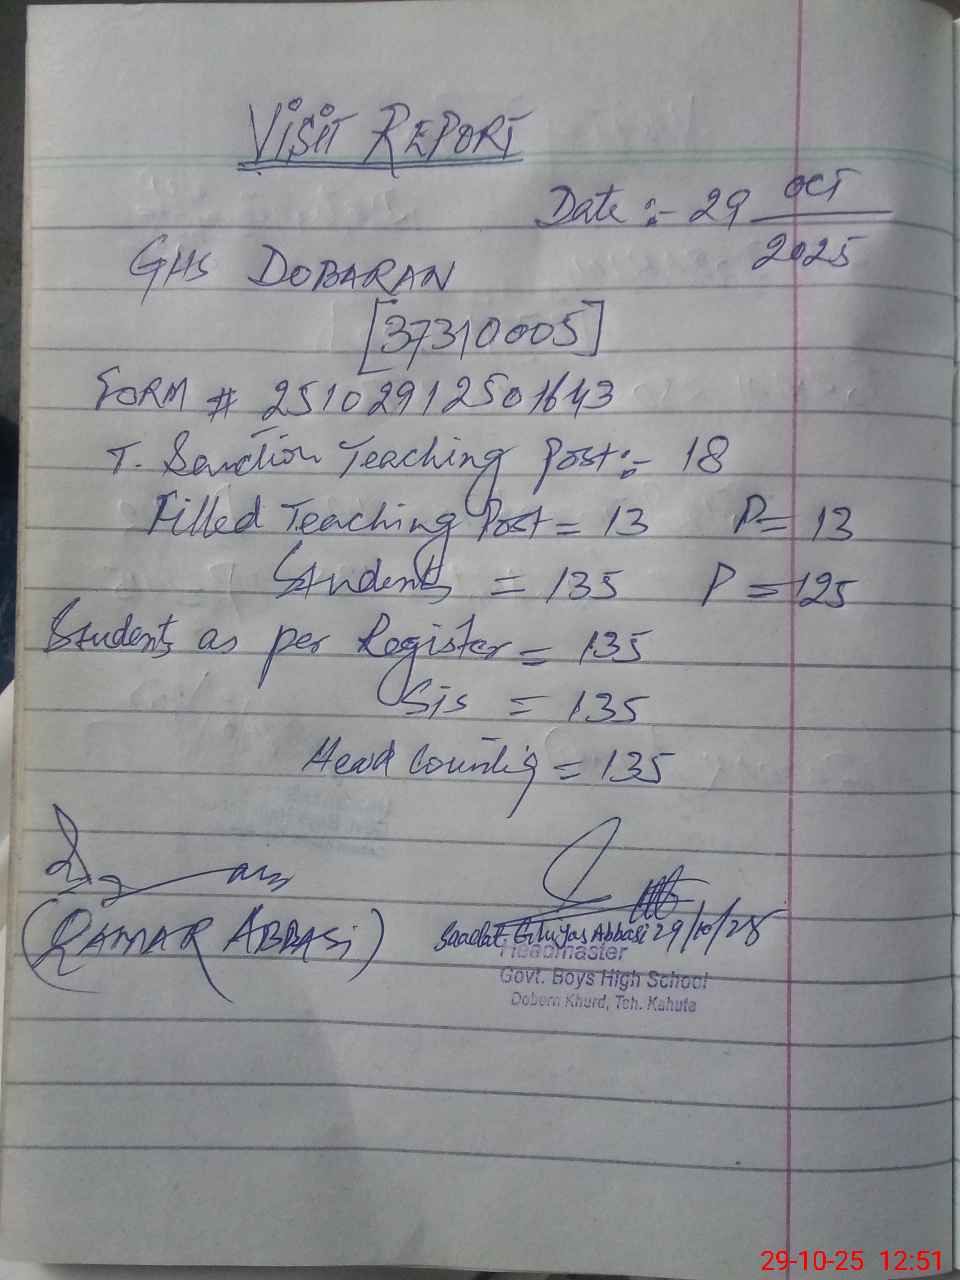 VISIT REPORT
Date :- 29 OCT
2025
GHS DOBARAN
[37310005]
FORM # 25102912501643
T. Sanction Teaching Post :- 18
Filled Teaching Post = 13 P = 13
Students = 135 P = 125
Students as per Register = 135
Sis = 135
Head Counting = 135
(QAMAR ABBASI)
Saadat Abbasi 29/10/25
Headmaster
Govt. Boys High School
Dobern Khurd, Teh. Kahuta
29-10-25 12:51